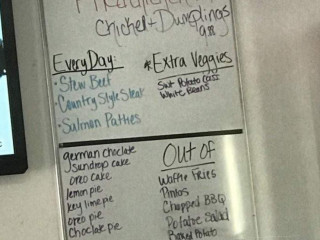 Chicken + Dumplings
Every Day:
· Stew Beef
· Country Style Steak
· Salmon Patties
*Extra Veggies
White Beans
german choclate
Sundrop cake
oreo cake
lemon pie
key lime pie
oreo pie
Choclate pie
Out of
Waffle Fries
Pintos
Chopped BBQ
Potatoe Salad
Baked Potato